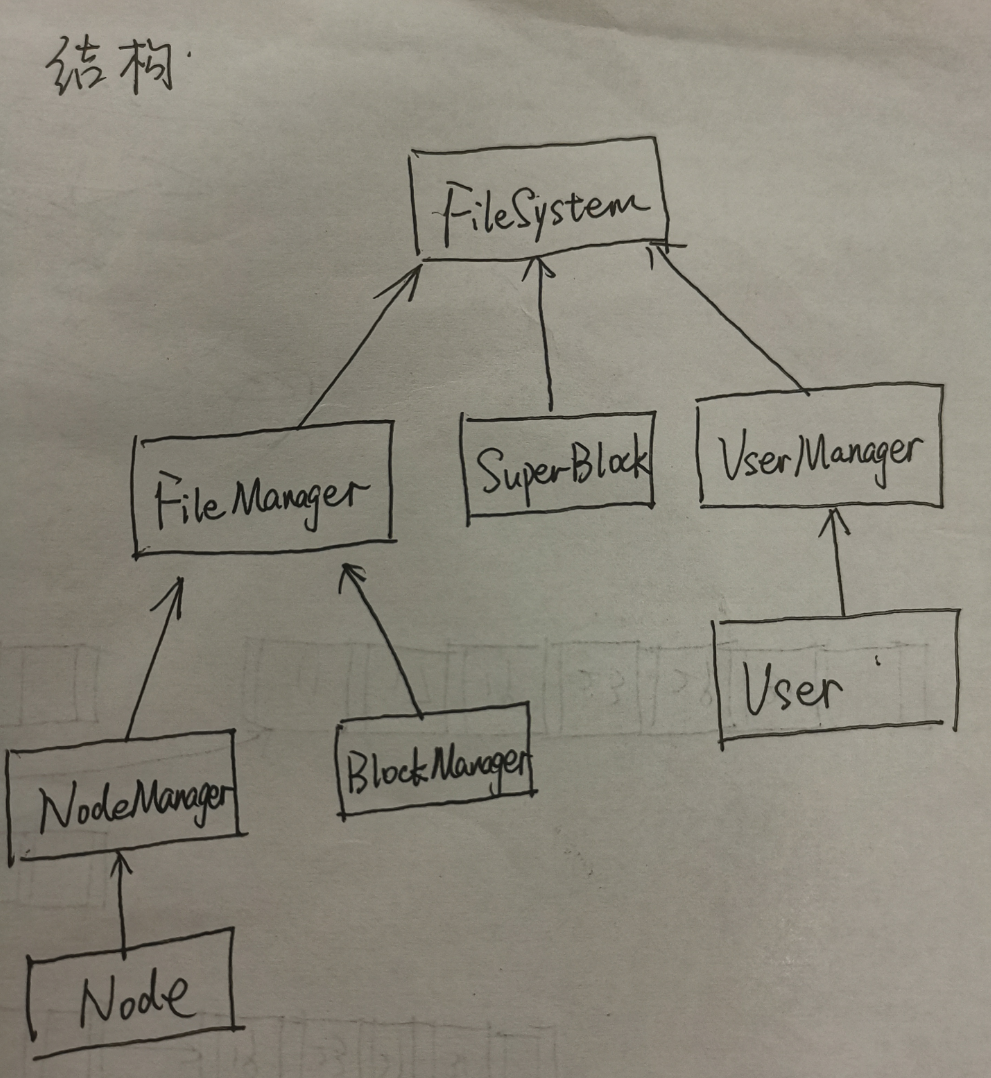 结构
FileSystem
FileManager
SuperBlock
UserManager
User
NodeManager
BlockManager
Node